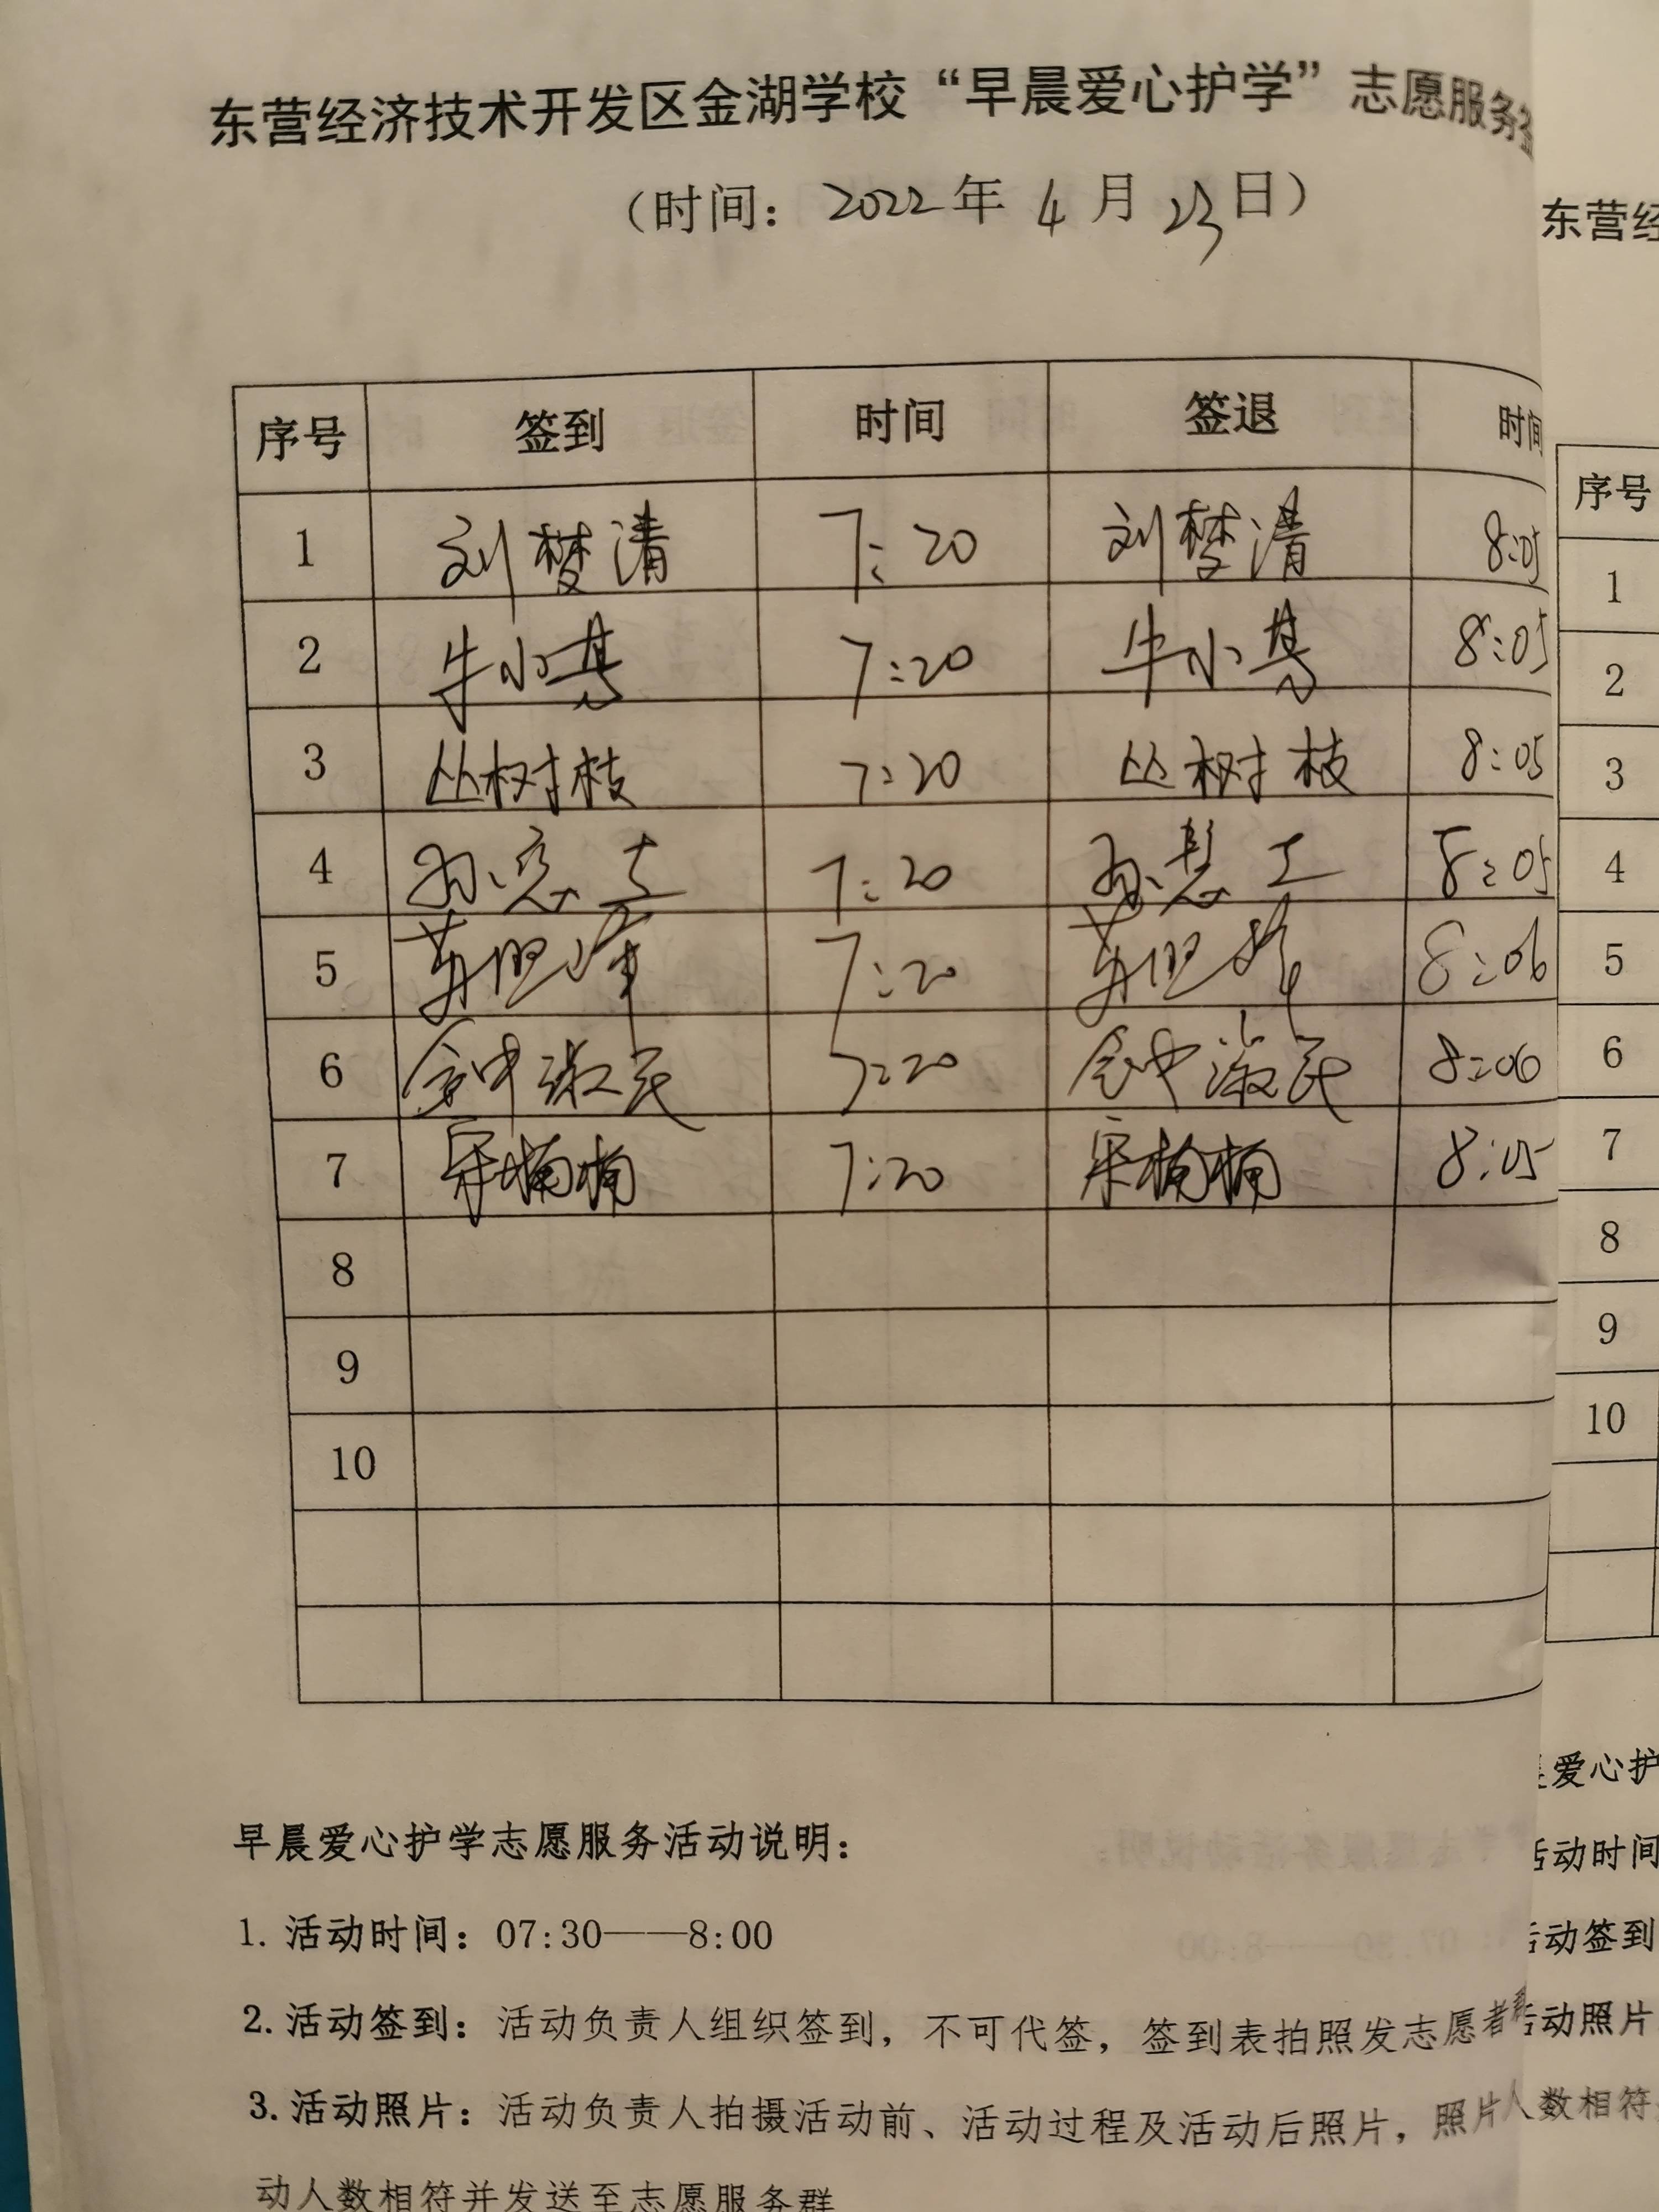 东营经济技术开发区金湖学校“早晨爱心护学”志愿服务签
（时间：2022年4月23日）
序号 签到 时间 签退 时间
1 刘梦清 7:20 刘梦清 8:05
2 牛小 7:20 牛小 8:05
3 丛树枝 7:20 丛树枝 8:05
4 孙 7:20 孙慧 8:05
5 7:20 8:06
6 钟淑民 7:20 钟淑民 8:06
7 宋楠楠 7:20 宋楠楠 8:05
8
9
10
早晨爱心护学志愿服务活动说明：
1. 活动时间：07:30——8:00
2. 活动签到：活动负责人组织签到，不可代签，签到表拍照发志愿者
3. 活动照片：活动负责人拍摄活动前、活动过程及活动后照片，照片
动人数相符并发送至志愿服务群
东营经
序号
1
2
3
4
5
6
7
8
9
10
爱心护
活动时间
活动签到
活动照片
人数相符